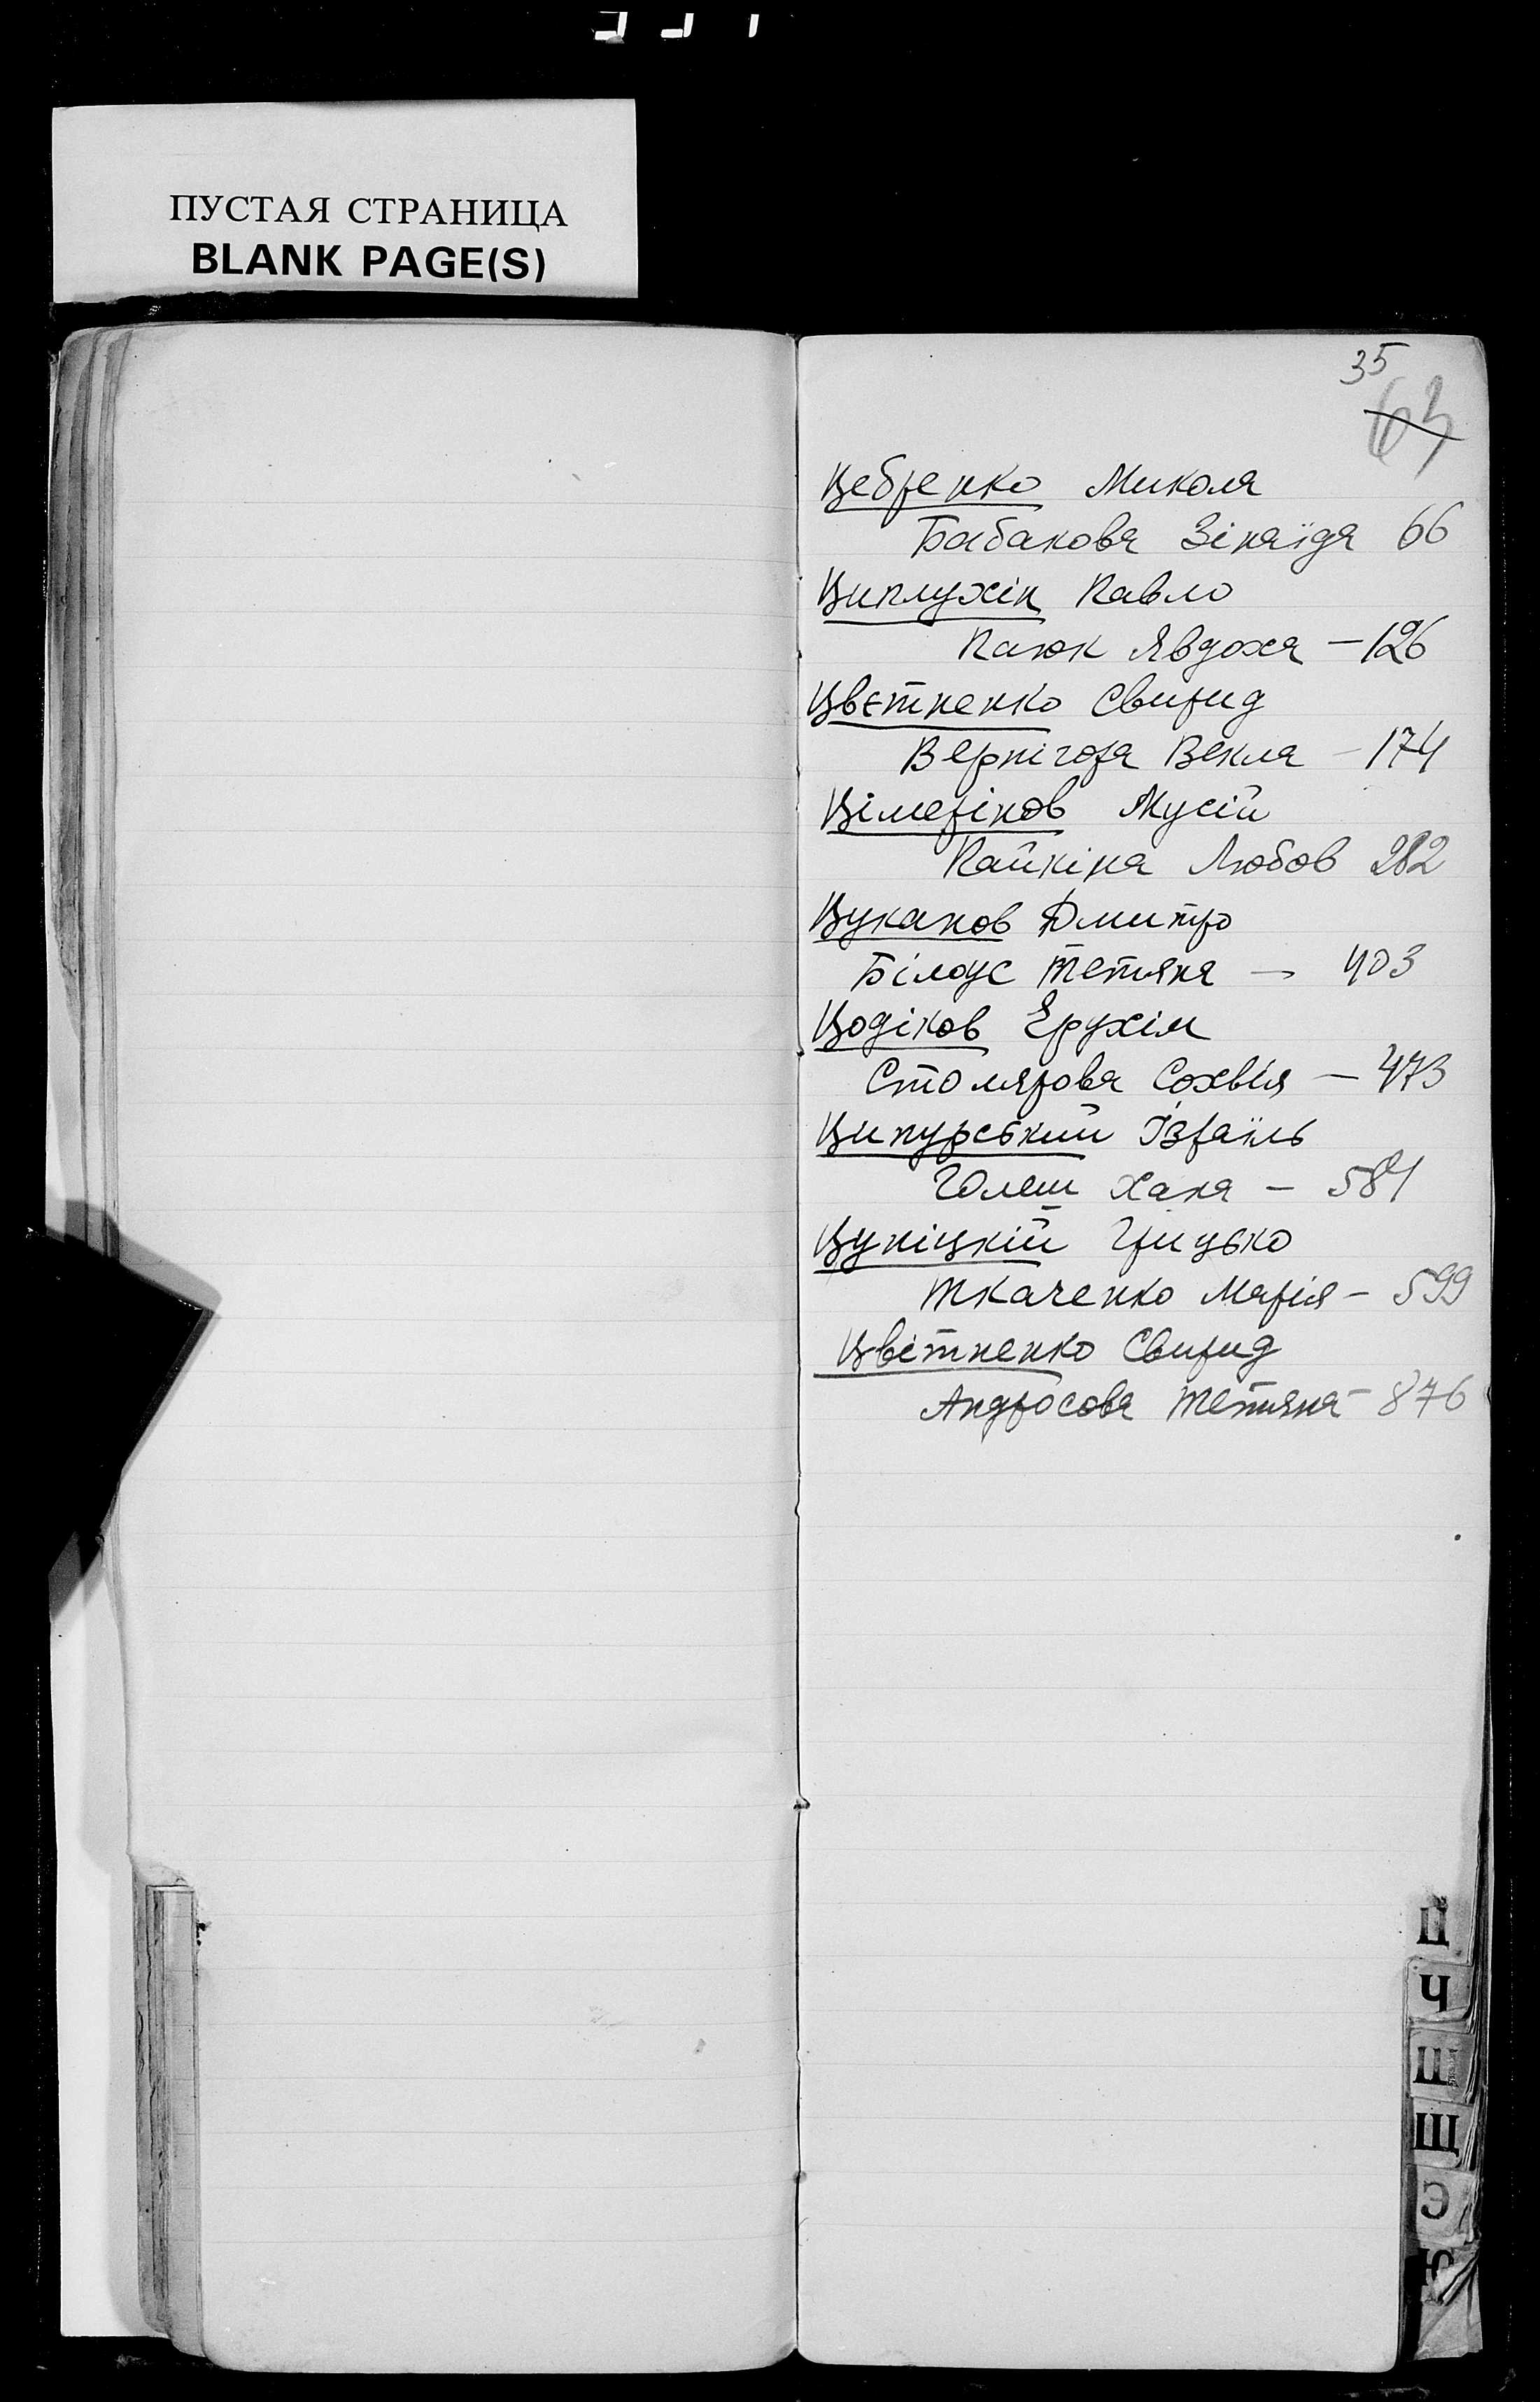 ПУСТАЯ СТРАНИЦА
BLANK PAGE(S)
35
63
Цебренко Микола
Бабакова Зінаїда 66
Циплухін Павло
Паюк Явдоха – 126
Цвєтненко Свирид
Вернігора Векла – 174
Цімерінов Мусій
Пайкіна Любов 282
Цуканов Дмитро
Білоус Тетяна – 403
Цодіков Ерухім
Столярова Сохвія – 473
Ципурський Ізраїль
Юлеш Хана – 581
Цупіцкій Грицько
Ткаченко Марія – 599
Цвітненко Свирид
Андросова Тетяна – 876
Ц
Ч
Ш
Щ
Э
Ю